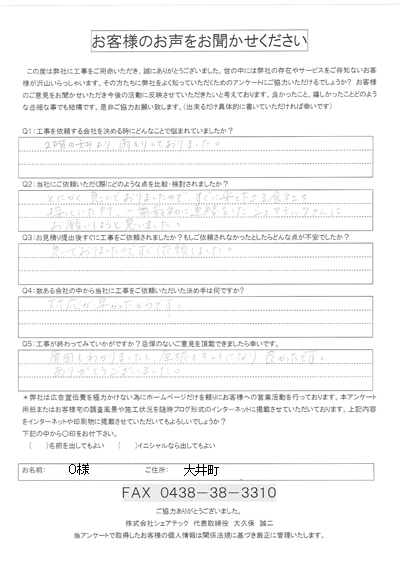 お客様のお声をお聞かせください
この度は弊社に工事をご用命いただき、誠にありがとうございました。世の中には弊社の存在やサービスをご存知ないお客
様が沢山いらっしゃいます。その方たちに弊社をよく知っていただくためのアンケートにご協力いただけるでしょうか？ お客様
のご意見をお聞かせいただき今後の活動に反映させていただきたいと考えております。良かったこと、嬉しかったことどのよう
な些細な事でも結構です。是非ご協力お願い致します。（出来るだけ具体的に書いていただければ幸いです）
Q1：工事を依頼する会社を決める時にどんなことで悩まれていましたか？
2階の雨もり 雨もりしておりました。
Q2：当社にご依頼いただく際にどのような点を比較・検討されましたか？
とにかく急いでおりましたので、すぐに来れる会社を
探していた所、一番最初に連絡をいただいたシェアテックさんに
お願いしようと思いました。
Q3：お見積り提出後すぐに工事をご依頼されましたか？もしご依頼されなかったとしたらどんな点が不安でしたか？
急いでおりましたのですぐ依頼しました。
Q4：数ある会社の中から当社に工事をご依頼いただいた決め手は何ですか？
対応が早かったからです。
Q5：工事が終わってみていかがですか？忌憚のないご意見を頂戴できましたら幸いです。
原因もわかりましたし、屋根もキレイになり良かったです。
ありがとうございました。
＊弊社は広告宣伝費を極力かけない為にホームページだけを頼りにお客様への営業活動を行っております。本アンケート
用紙またはお客様宅の調査風景や施工状況を随時ブログ形式のインターネットに掲載させていただいております。上記内容
をインターネットや印刷物に掲載させていただいてもよろしいでしょうか？
下記の中から〇印をお付下さい。
（　　）名前を出してもよい　（　　）イニシャルなら出してもよい
お名前： O様 ご住所： 大井町
FAX 0438－38－3310
ご協力ありがとうございました。
株式会社シェアテック 代表取締役 大久保 誠二
当アンケートで取得したお客様の個人情報は関係法規に基づき厳正に管理いたします。